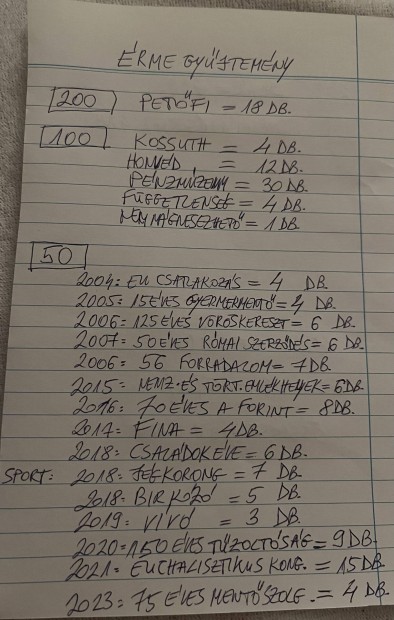 ÉRME GYŰJTEMÉNY
200 PETŐFI = 18 DB.
100 KOSSUTH = 4 DB.
HONVÉD = 12 DB.
PÉNZMÚZEUM = 30 DB.
FÜGGETLENSÉG = 4 DB.
NEM MÁGNESEZHETŐ = 1 DB.
50
2004: EU CSATLAKOZÁS = 4 DB.
2005: 15 ÉVES GYERMEKMENTŐ = 4 DB.
2006: 125 ÉVES VÖRÖSKERESZT = 6 DB.
2007: 50 ÉVES RÓMAI SZERZŐDÉS = 6 DB.
2006: 56 FORRADALOM = 7 DB.
2015: NEMZ. ÉS TÖRT. EMLÉKHELYEK = 6 DB.
2016: 70 ÉVES A FORINT = 8 DB.
2017: FINA = 4 DB.
2018: CSALÁDOK ÉVE = 6 DB.
SPORT: 2018: JÉGKORONG = 7 DB.
2018: BIRKÓZÓ = 5 DB.
2019: VÍVÓ = 3 DB.
2020: 150 ÉVES TŰZOLTÓSÁG = 9 DB.
2021: EUCHALISZTIKUS KONG. = 15 DB.
2023: 75 ÉVES MENTŐSZOLG. = 4 DB.